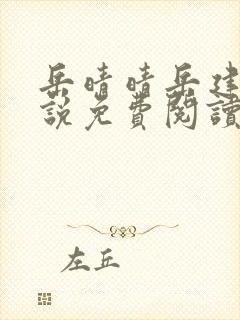 岳晴晴岳建
說免費閱讀
左丘